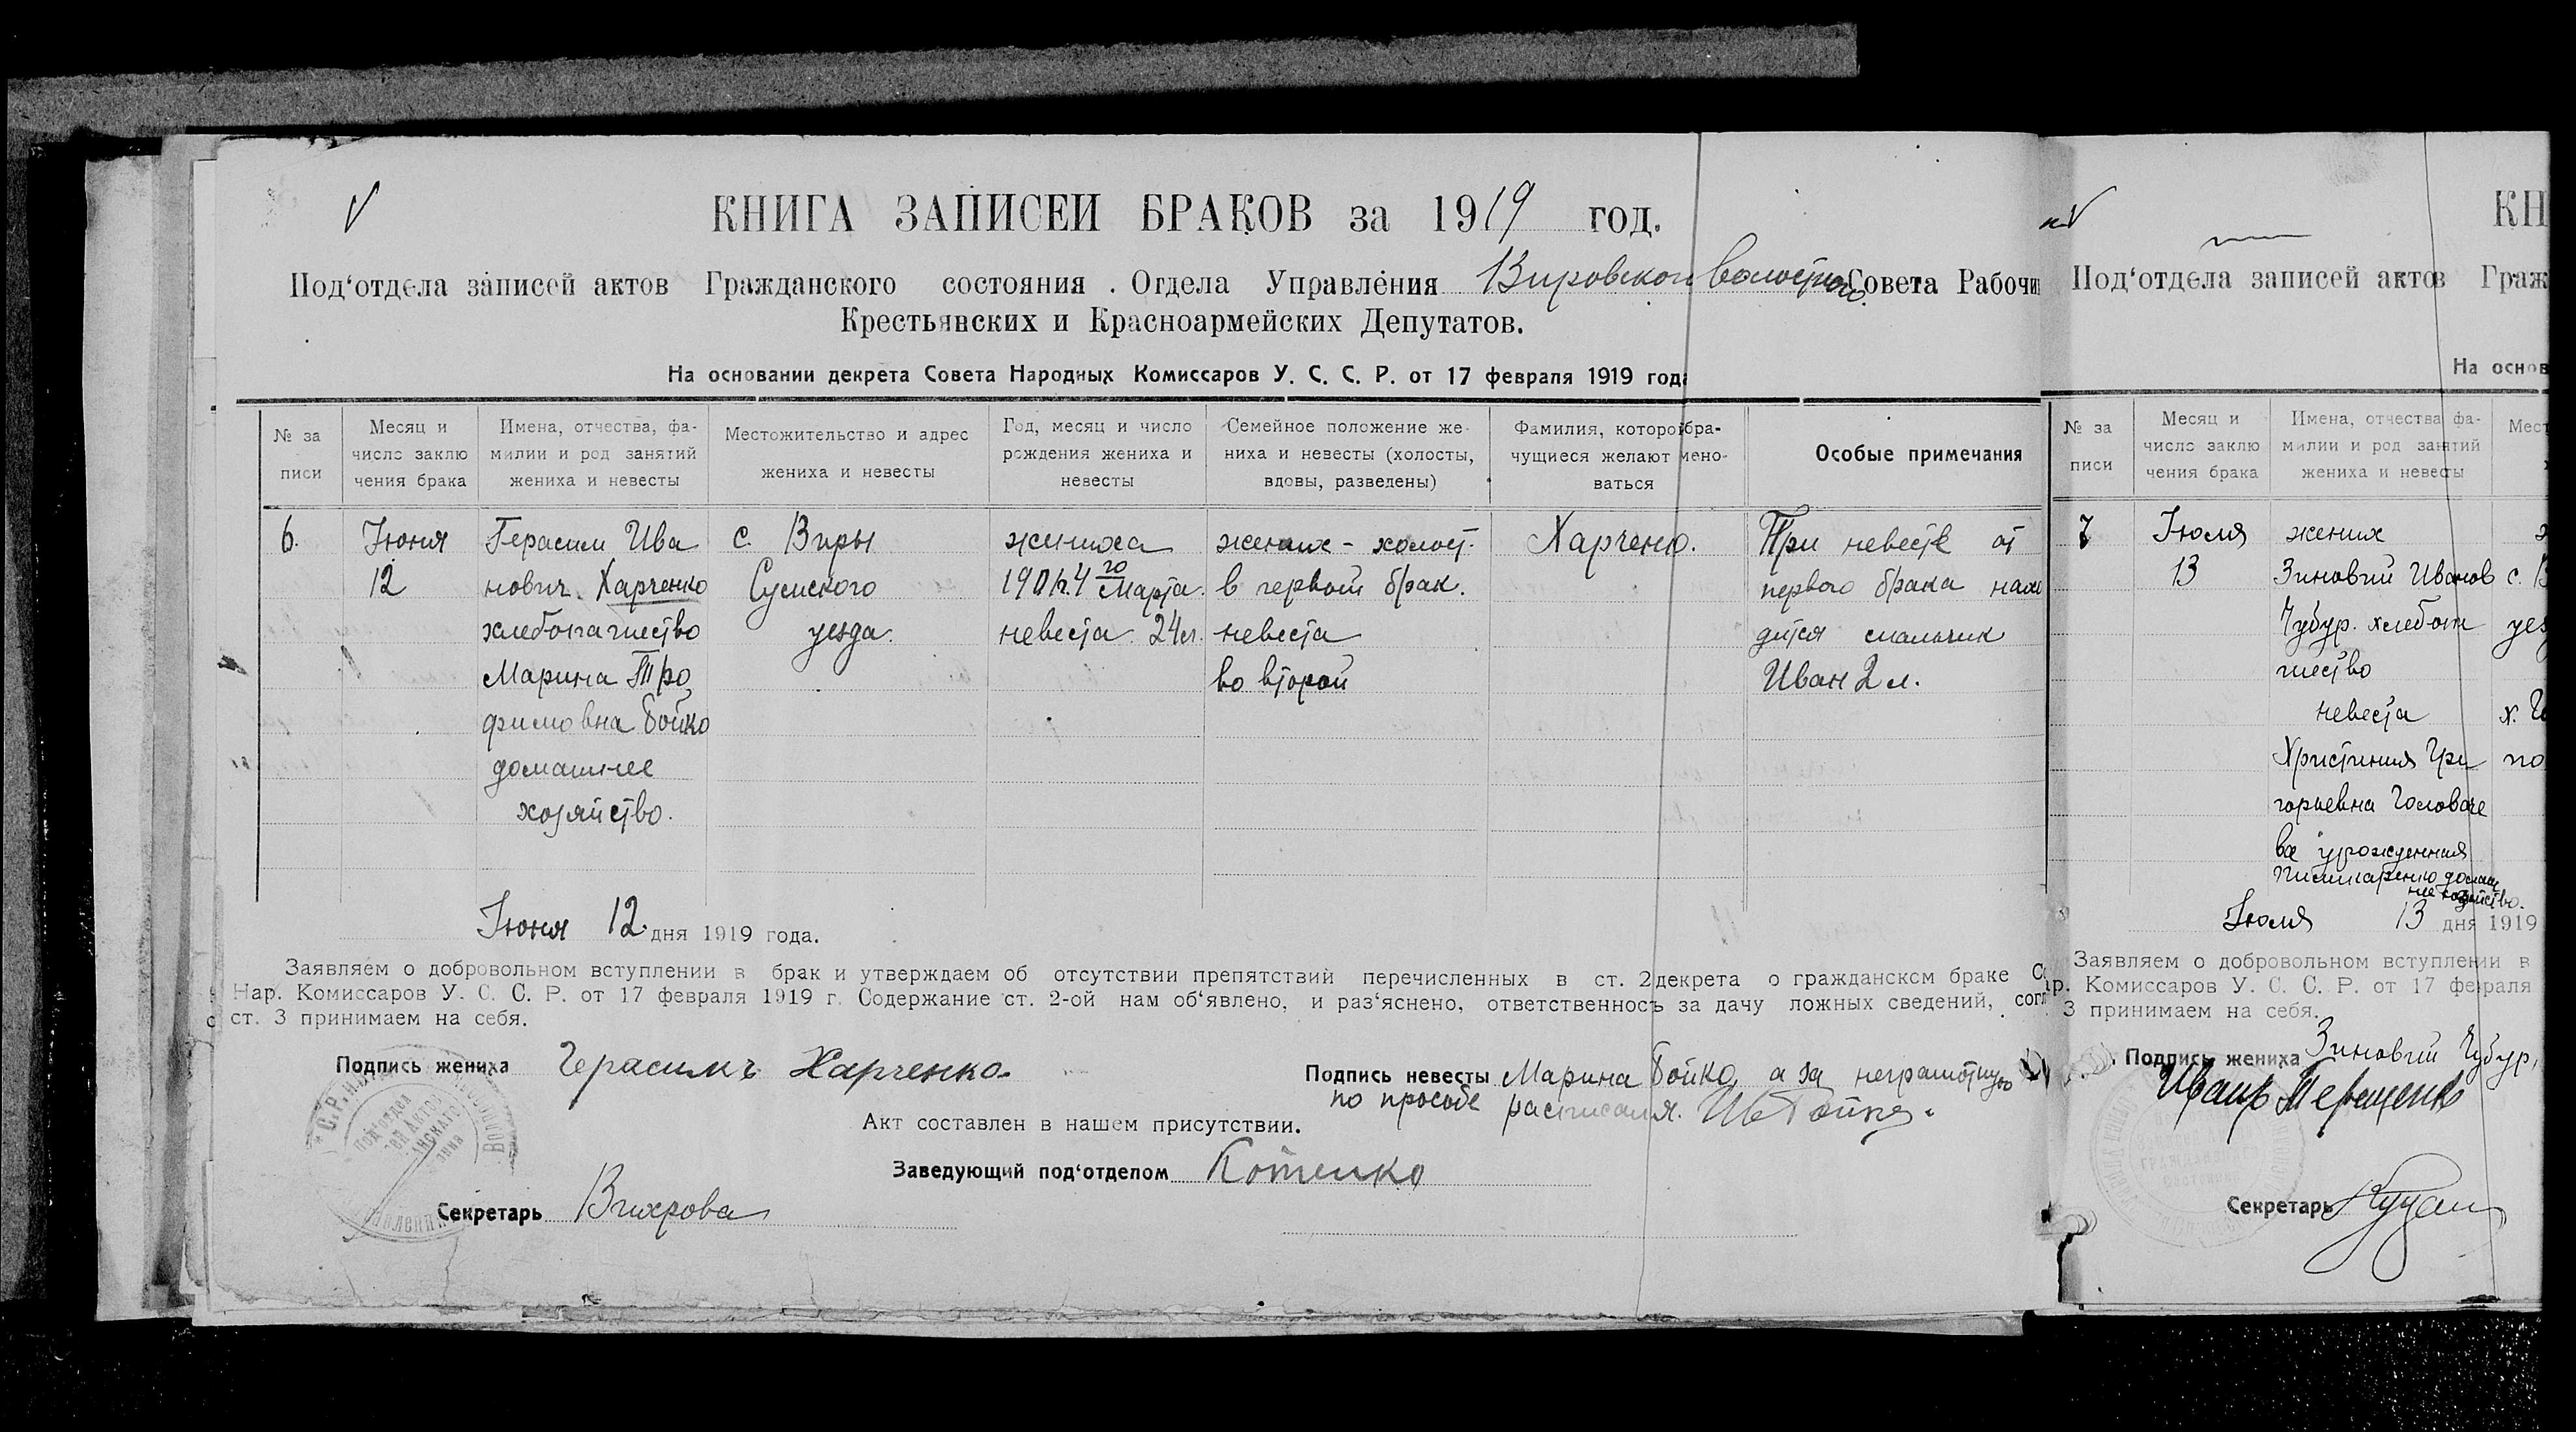 КНИГА ЗАПИСЕЙ БРАКОВ за 1919 год.
Под'отдела записей актов Гражданского состояния Отдела Управления Вировской волостного Совета Рабочи
Крестьянских и Красноармейских Депутатов.
На основании декрета Совета Народных Комиссаров У. С. С. Р. от 17 февраля 1919 года
№ за писи
Месяц и число заклю чения брака
Имена, отчества, фа- милии и род занятий жениха и невесты
Местожительство и адрес жениха и невесты
Год, месяц и число рождения жениха и невесты
Семейное положение же- ниха и невесты (холосты, вдовы, разведены)
Фамилия, которой бра- чущиеся желают имено- ваться
Особые примечания
6.
Июня
12
Герасим Ива
нович Харченко
хлебопашество
Марина Тро
фимовна Бойко
домашнее
хозяйство.
с. Виры
Сумского
уезда.
жениха
4го Марта.
невеста 24 л.
жених - холост.
в первый брак.
невеста
во второй
Харченко.
При невесте от
первого брака нахо
дится мальчик
Иван 2 л.
Июня 12 дня 1919 года.
Заявляем о добровольном вступлении в брак и утверждаем об отсутствии препятствий перечисленных в ст. 2 декрета о гражданском браке Со
Нар. Комиссаров У. С. С. Р. от 17 февраля 1919 г. Содержание ст. 2-ой нам об'явлено, и раз'яснено, ответственность за дачу ложных сведений, согл
ст. 3 принимаем на себя.
Подпись жениха Герасимъ Харченко.
Подпись невесты Марина Бойко, а за неграмотную
по просьбе расписался. Ив Бойко.
Акт составлен в нашем присутствии.
Заведующий под'отделом Котенко
Секретарь Вихрова
КН
Под'отдела записей актов Граж
На основ
№ за писи
Месяц и число заклю чения брака
Имена, отчества фа- милии и род занятий жениха и невесты
Мест
7
Июля
13
жених
Зиновий Иванов
Чубур. хлебопа
шество
невеста
Христиния Гри
горьевна Головаче
ва урожденная
домаш
нее хозяйство.
с. В
уез
х. Го
по
Июля 13 дня 1919
Заявляем о добровольном вступлении в
р. Комиссаров У. С. С. Р. от 17 февраля
3 принимаем на себя.
Подпись жениха Зиновий Чубур,
Иванъ Терещенко
Секретарь